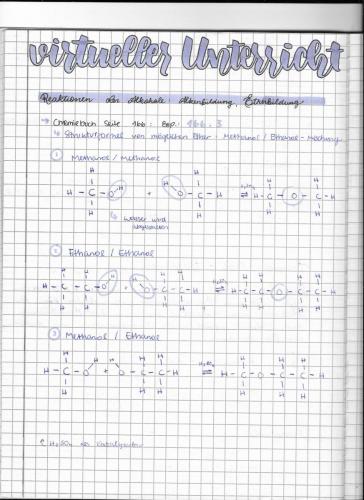 virtueller Unterricht
Reaktionen der Alkohole: Alkenbildung, Etherbildung
→ Chemiebuch Seite 166: Bsp.: 166.3
↳ Strukturformel von möglichen Ether - Methanol / Ethanol - Mischung
1 Methanol / Methanol
H H H H
H - C - O H + H O - C - H ⇌ H₂SO₄ H - C - O - C - H
H H H H
↳ Wasser wird abgespalten
2 Ethanol / Ethanol
H H H H H H H H
H - C - C - O H + H O - C - C - H ⇌ H₂SO₄ H - C - C - O - C - C - H
H H H H H H H H
3 Methanol / Ethanol
H H H H H H H H
H - C - O + O - C - C - H ⇌ H₂SO₄ H - C - O - C - C - H
H H H H H H
H₂SO₄ als Katalysator